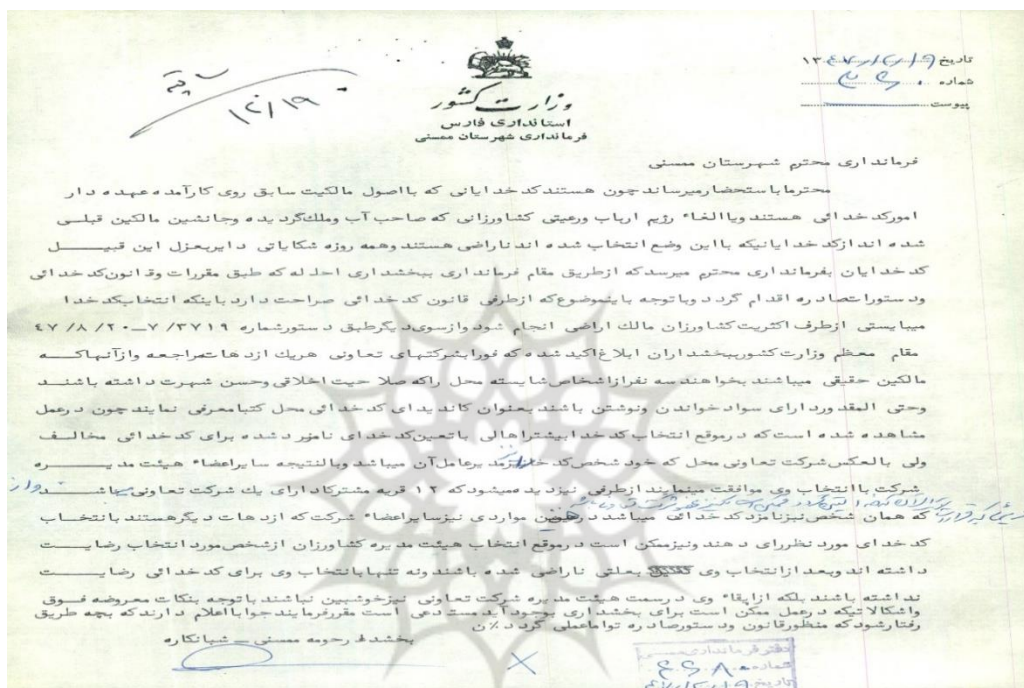 تاریخ ۱۳۴۷/۱۲/۱۹
شماره
پیوست
۱۲/۱۹
وزارت کشور
استانداری فارس
فرمانداری شهرستان ممسنی
فرمانداری محترم شهرستان ممسنی
محترما باستحضار میرساند چون هستند کدخدایانی که با اصول مالکیت سابق روی کار آمده عهده دار
امور کدخدائی هستند و با الغاء رژیم ارباب ورعیتی کشاورزانی که صاحب آب وملک گردیده وجانشین مالکین قبلی
شده اند از کدخدایانیکه با این وضع انتخاب شده اند ناراضی هستند وهمه روزه شکایاتی دایر بعزل این قبیل
کدخدایان بفرمانداری محترم میرسد که ازطریق مقام فرمانداری ببخشداری احاله که طبق مقررات وقانون کدخدائی
ودستورات صادره اقدام گردد وباتوجه باینموضوع که ازطرفی قانون کدخدائی صراحت دارد باینکه انتخاب کدخدا
میبایستی ازطرف اکثریت کشاورزان مالک اراضی انجام شود وازسوی دیگر طبق دستور شماره ۷/۳۷۱۹ــ۴۷/۸/۲۰
مقام معظم وزارت کشور ببخشداران ابلاغ اکید شده که فورا بشرکتهای تعاونی هریک ازدهات مراجعه وازآنها که
مالکین حقیقی میباشند بخواهند سه نفر ازاشخاص شایسته محل را که صلاحیت اخلاقی وحسن شهرت داشته باشند
وحتی المقدور دارای سواد خواندن ونوشتن باشند بعنوان کاندیدای کدخدائی محل کتبا معرفی نمایند چون درعمل
مشاهده شده است که درموقع انتخاب کدخدا بیشتر اهالی با تعین کدخدای نامزد شده برای کدخدائی مخالف
ولی بالعکس شرکت تعاونی محل که خود شخص کدخدا نیز مدیرعامل آن میباشد وبالنتیجه سایراعضاء هیئت مدیره
شرکت با انتخاب وی موافقت مینمایند ازطرفی نیز دیده میشود که ۱۲ قریه مشترکا دارای یک شرکت تعاونی میباشند
که همان شخص نیز نامزد کدخدائی میباشد درچنین مواردی نیز سایراعضاء شرکت که ازدهات دیگر هستند بانتخاب
کدخدای مورد نظر رای دهند ونیز ممکن است درموقع انتخاب هیئت مدیره کشاورزان ازشخص مورد انتخاب رضایت
داشته اند وبعد ازانتخاب وی بعلتی ناراضی شده باشند ونه تنها بانتخاب وی برای کدخدائی رضایت
نداشته باشند بلکه ازابقاء وی درسمت هیئت مدیره شرکت تعاونی نیز خوشبین نباشند باتوجه بنکات معروضه فوق
واشکالاتیکه درعمل ممکن است برای بخشداری بوجود آید مستدعی است مقرر فرمایند جوابا اعلام دارند که بچه طریق
رفتار شود که منظور قانون ودستور صادره تواما عملی گردد٪ن
بخشدار حومه ممسنی ــ شبانکاره
دفتر فرمانداری ممسنی
شماره
تاریخ ۴۷/۱۲/۱۹